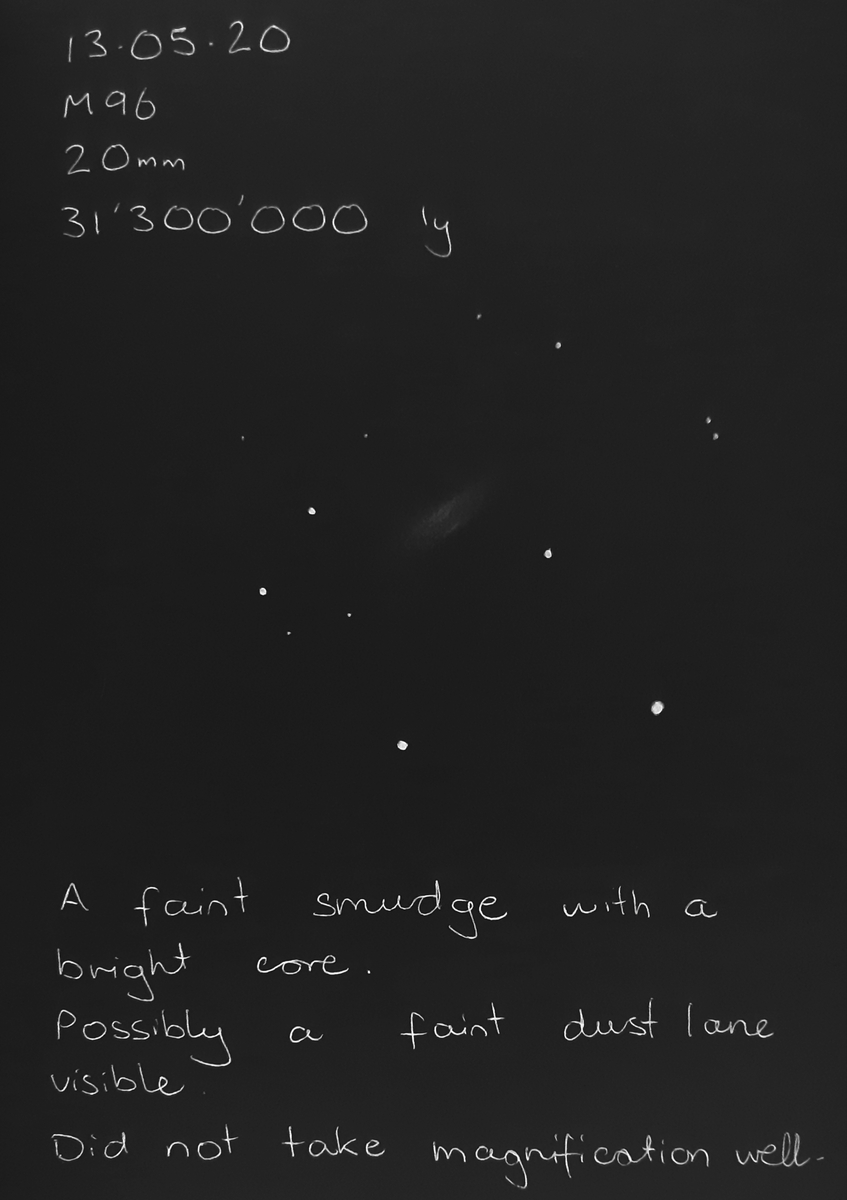 13.05.20
M96
20mm
31'300'000 ly
A faint smudge with a
bright core.
Possibly a faint dust lane
visible.
Did not take magnification well.